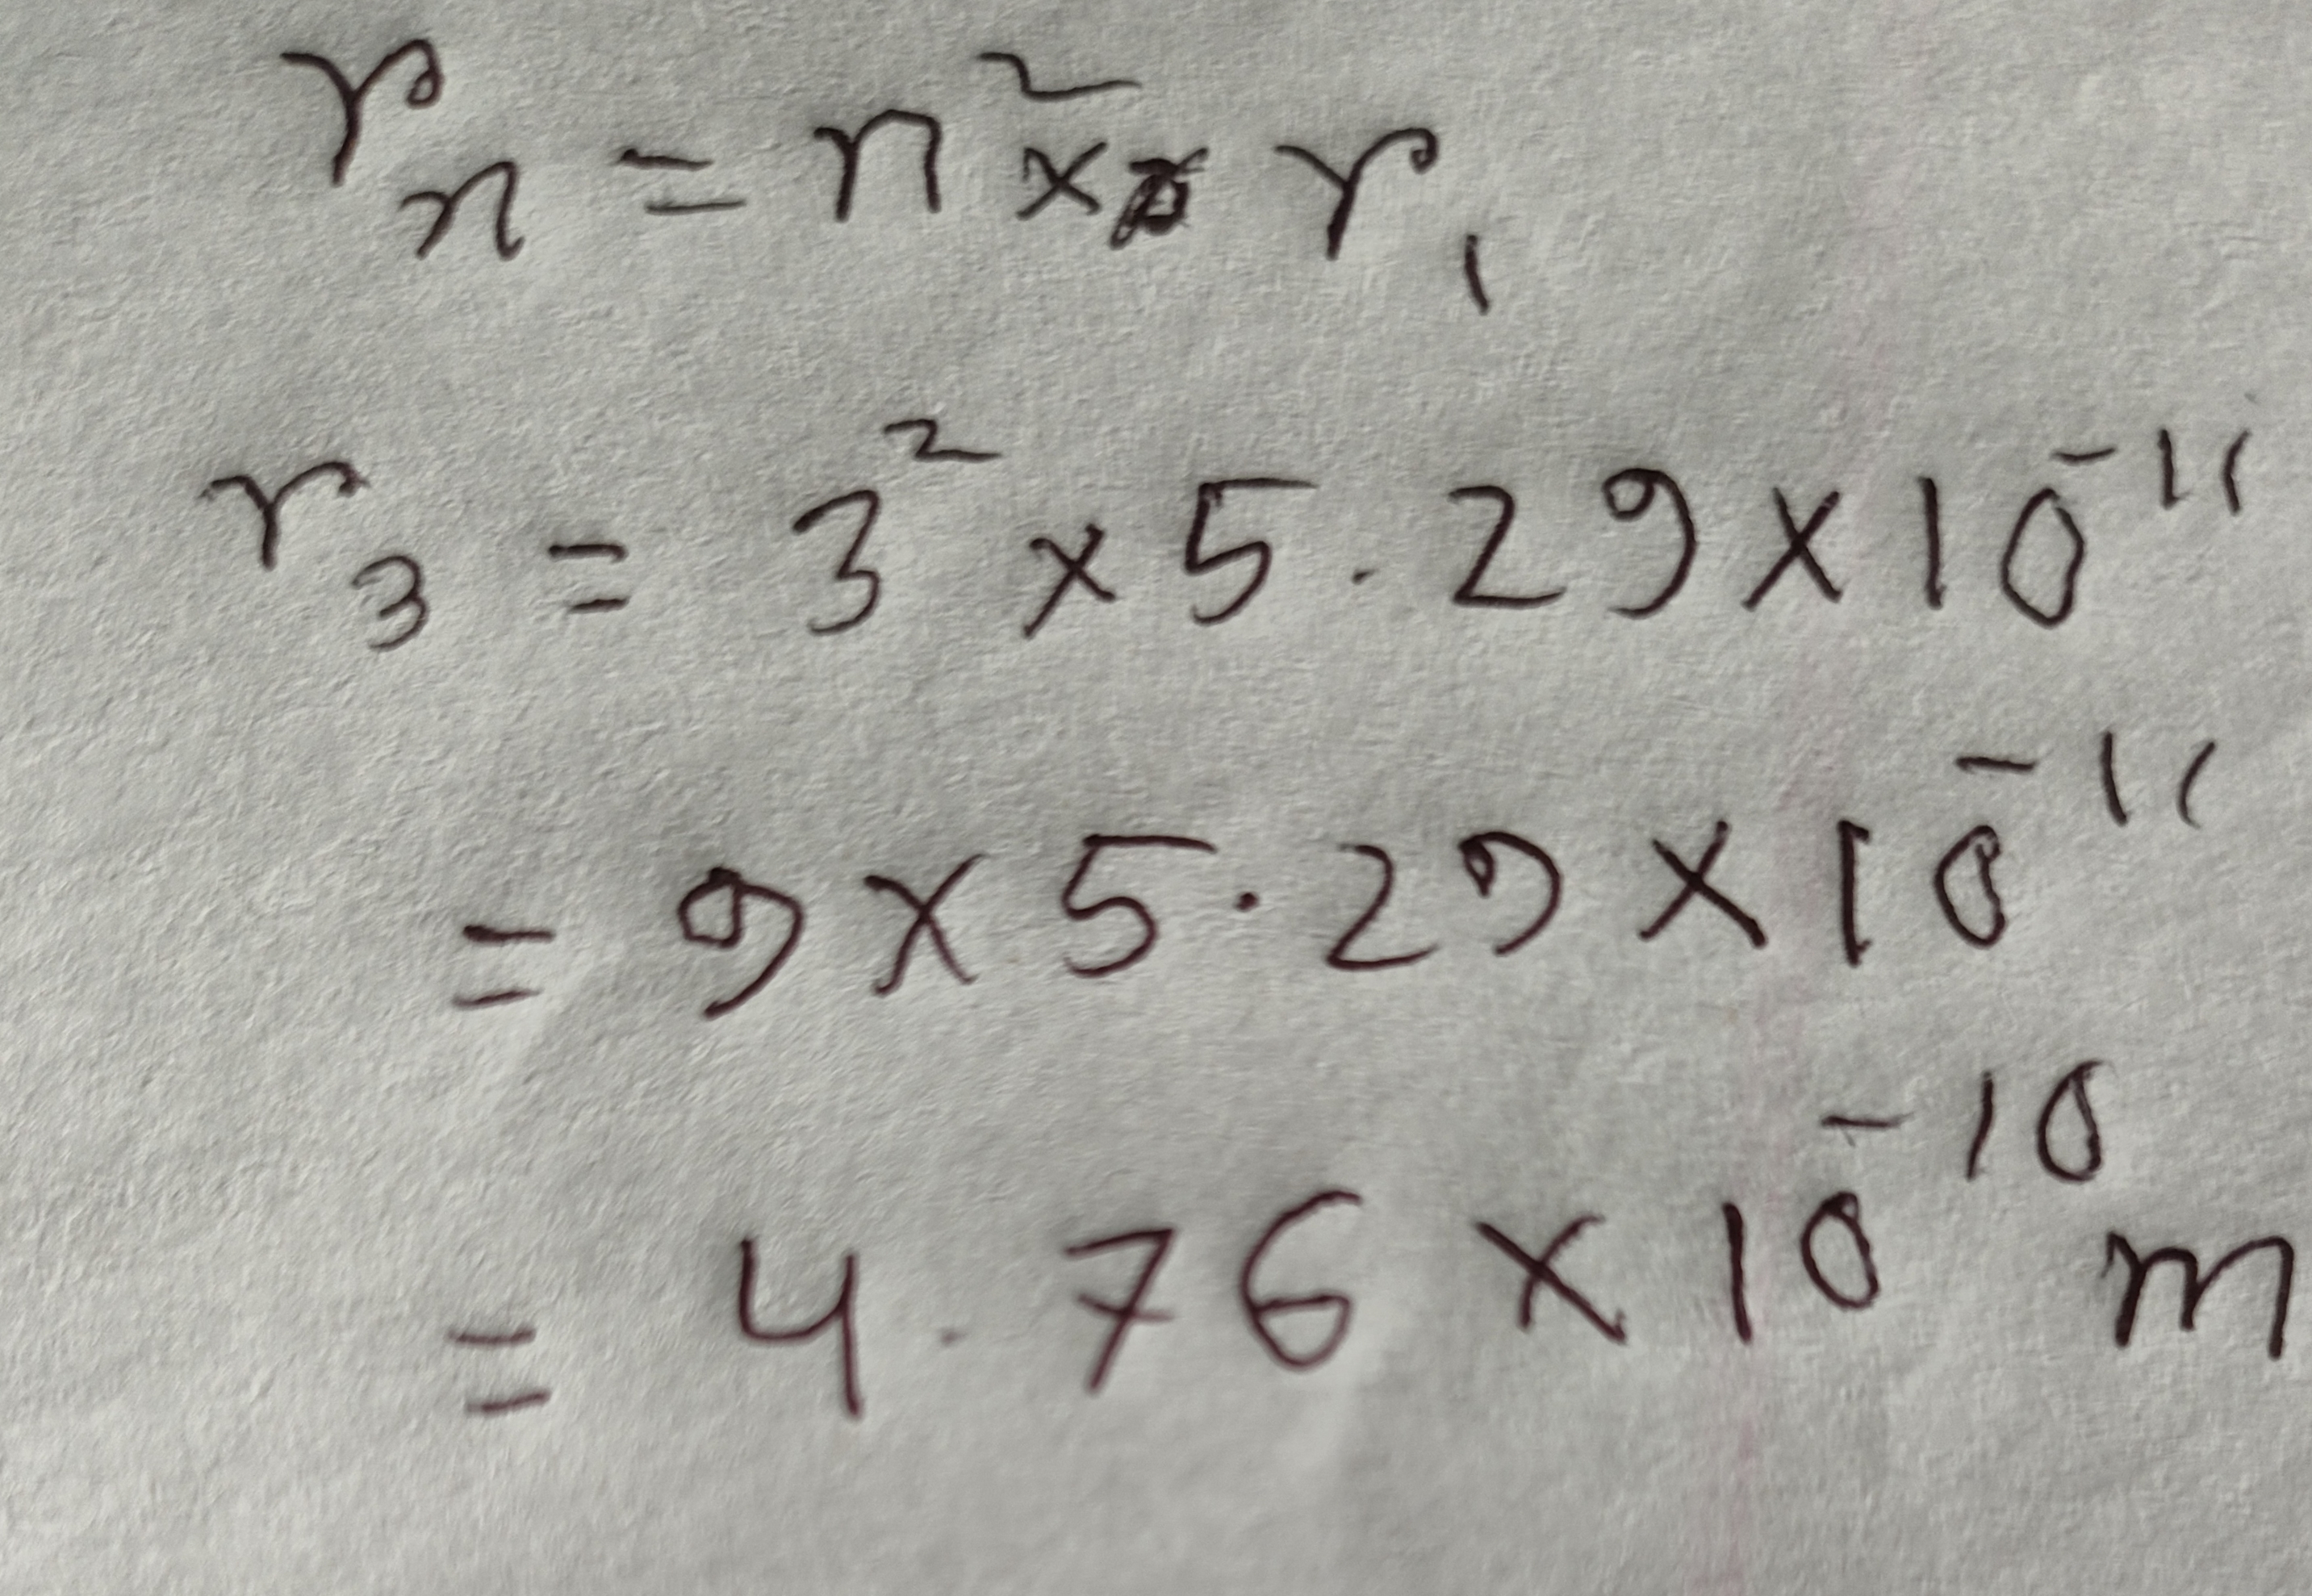 rₙ = n² × r₁
r₃ = 3² × 5.29 × 10⁻¹¹
= 9 × 5.29 × 10⁻¹¹
= 4.76 × 10⁻¹⁰ m